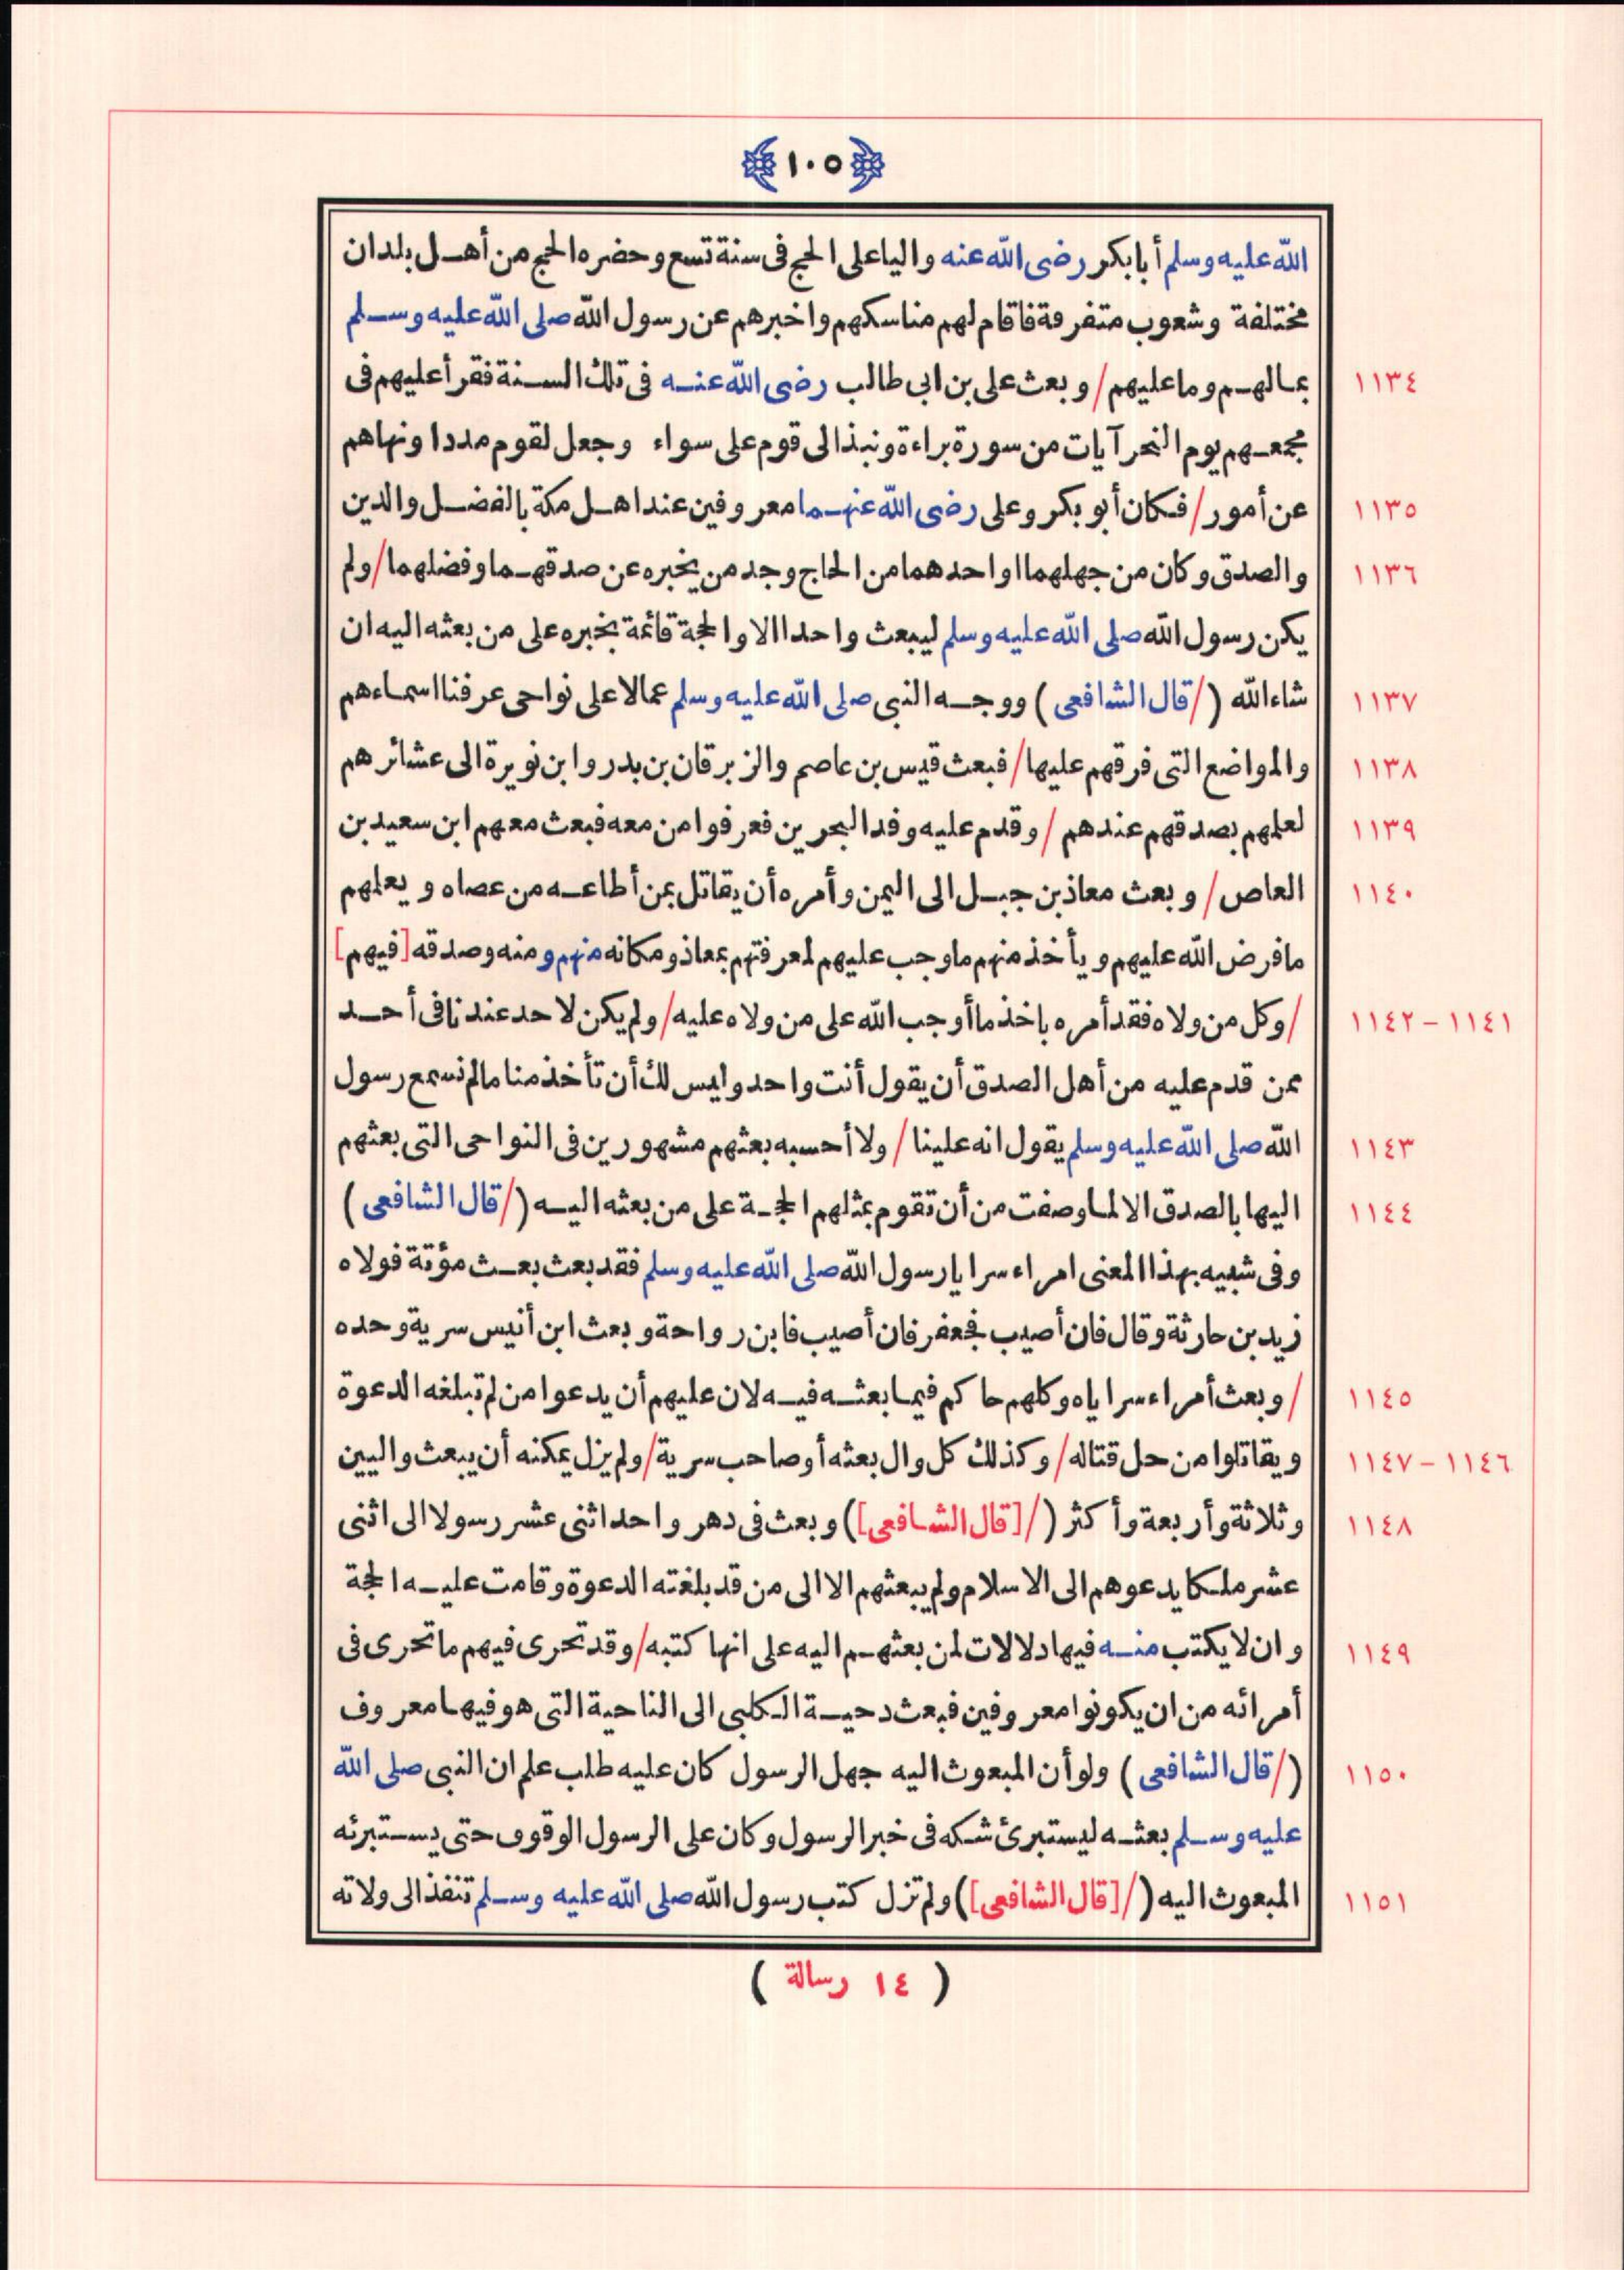 ١٠٥
الله عليه وسلم أبا بكر رضى الله عنه واليا على الحج فى سنة تسع وحضره الحج من أهل بلدان
مختلفة وشعوب متفرقة فاقام لهم مناسكهم واخبرهم عن رسول الله صلى الله عليه وسلم
١١٣٤ بمالهم وما عليهم / وبعث على بن ابى طالب رضى الله عنه فى تلك السنة فقرأ عليهم فى
مجمعهم يوم النحر آيات من سورة براءة ونبذ الى قوم على سواء وجعل لقوم مددا ونهاهم
١١٣٥ عن أمور / فكان أبو بكر وعلى رضى الله عنهما معروفين عند اهل مكة بالفضل والدين
١١٣٦ والصدق وكان من جهلهما او احدهما من الحاج وجد من يخبره عن صدقهما وفضلهما / ولم
يكن رسول الله صلى الله عليه وسلم ليبعث واحدا الا والحجة قائمة بخبره على من بعثه اليه ان
١١٣٧ شاء الله (/ قال الشافعى) ووجه النبى صلى الله عليه وسلم عمالا على نواحى عرفنا اسماءهم
١١٣٨ والمواضع التى فرقهم عليها / فبعث قيس بن عاصم والزبرقان بن بدر وابن نويرة الى عشائرهم
١١٣٩ لعلمهم بصدقهم عندهم / وقدم عليه وفد البحرين فعرفوا من معه فبعث معهم ابن سعيد بن
١١٤٠ العاص / وبعث معاذ بن جبل الى اليمن وأمره أن يقاتل بمن أطاعه من عصاه ويعلمهم
ما فرض الله عليهم ويأخذ منهم ما وجب عليهم لمعرفتهم بمعاذ ومكانه منهم ومنه وصدقه [فيهم]
١١٤١ - ١١٤٢ / وكل من ولاه فقد أمره باخذ ما أوجب الله على من ولاه عليه / ولم يكن لاحد عندنا فى أحد
ممن قدم عليه من أهل الصدق أن يقول أنت واحد وليس لك أن تأخذ منا مالم نسمع رسول
١١٤٣ الله صلى الله عليه وسلم يقول انه علينا / ولا أحسبه بعثهم مشهورين فى النواحى التى بعثهم
١١٤٤ اليها بالصدق الا لما وصفت من أن تقوم بمثلهم الحجة على من بعثه اليه (/ قال الشافعى)
وفى شبيه بهذا المعنى امراء سرايا رسول الله صلى الله عليه وسلم فقد بعث بعث مؤتة فولاه
زيد بن حارثة وقال فان أصيب فجعفر فان أصيب فابن رواحة وبعث ابن أنيس سرية وحده
١١٤٥ / وبعث أمراء سراياه وكلهم حاكم فيما بعثه فيه لان عليهم أن يدعوا من لم تبلغه الدعوة
١١٤٦ - ١١٤٧ ويقاتلوا من حل قتاله / وكذلك كل وال بعثه أو صاحب سرية / ولم يزل يمكنه أن يبعث واليين
١١٤٨ وثلاثة وأربعة وأكثر (/ [قال الشافعى]) وبعث فى دهر واحد اثنى عشر رسولا الى اثنى
عشر ملكا يدعوهم الى الاسلام ولم يبعثهم الا الى من قد بلغته الدعوة وقامت عليه الحجة
١١٤٩ وان لا يكتب منه فيها دلالات لمن بعثهم اليه على انها كتبه / وقد تحرى فيهم ما تحرى فى
أمرائه من ان يكونوا معروفين فبعث دحية الكلبى الى الناحية التى هو فيها معروف
١١٥٠ (/ قال الشافعى) ولو أن المبعوث اليه جهل الرسول كان عليه طلب علم ان النبى صلى الله
عليه وسلم بعثه ليستبرئ شكه فى خبر الرسول وكان على الرسول الوقوف حتى يستبرئه
١١٥١ المبعوث اليه (/ [قال الشافعى]) ولم تزل كتب رسول الله صلى الله عليه وسلم تنفذ الى ولاته
(١٤ رسالة)